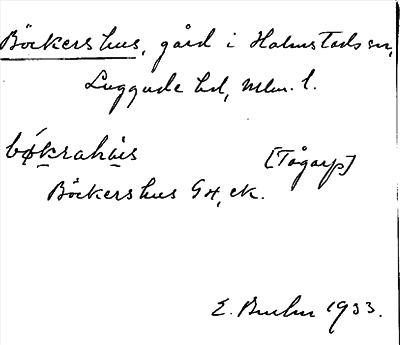 Böckershus, gård i Halmstads sn,
Luggude hd, Mlm. l.
bǿkrahùs [Tågarp]
Böckershus GH, ek.
E. 1933.